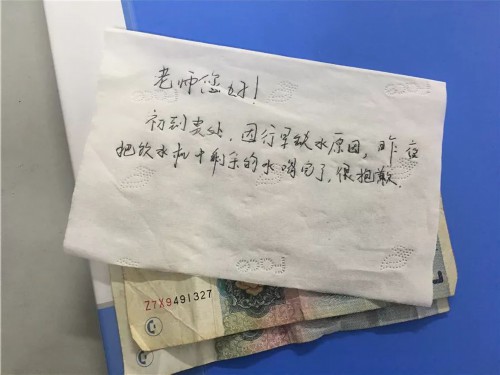 老师您好!
初到贵处,因行军缺水原因,昨夜
把饮水机中剩余的水喝完了,很抱歉.
Z7X9491327